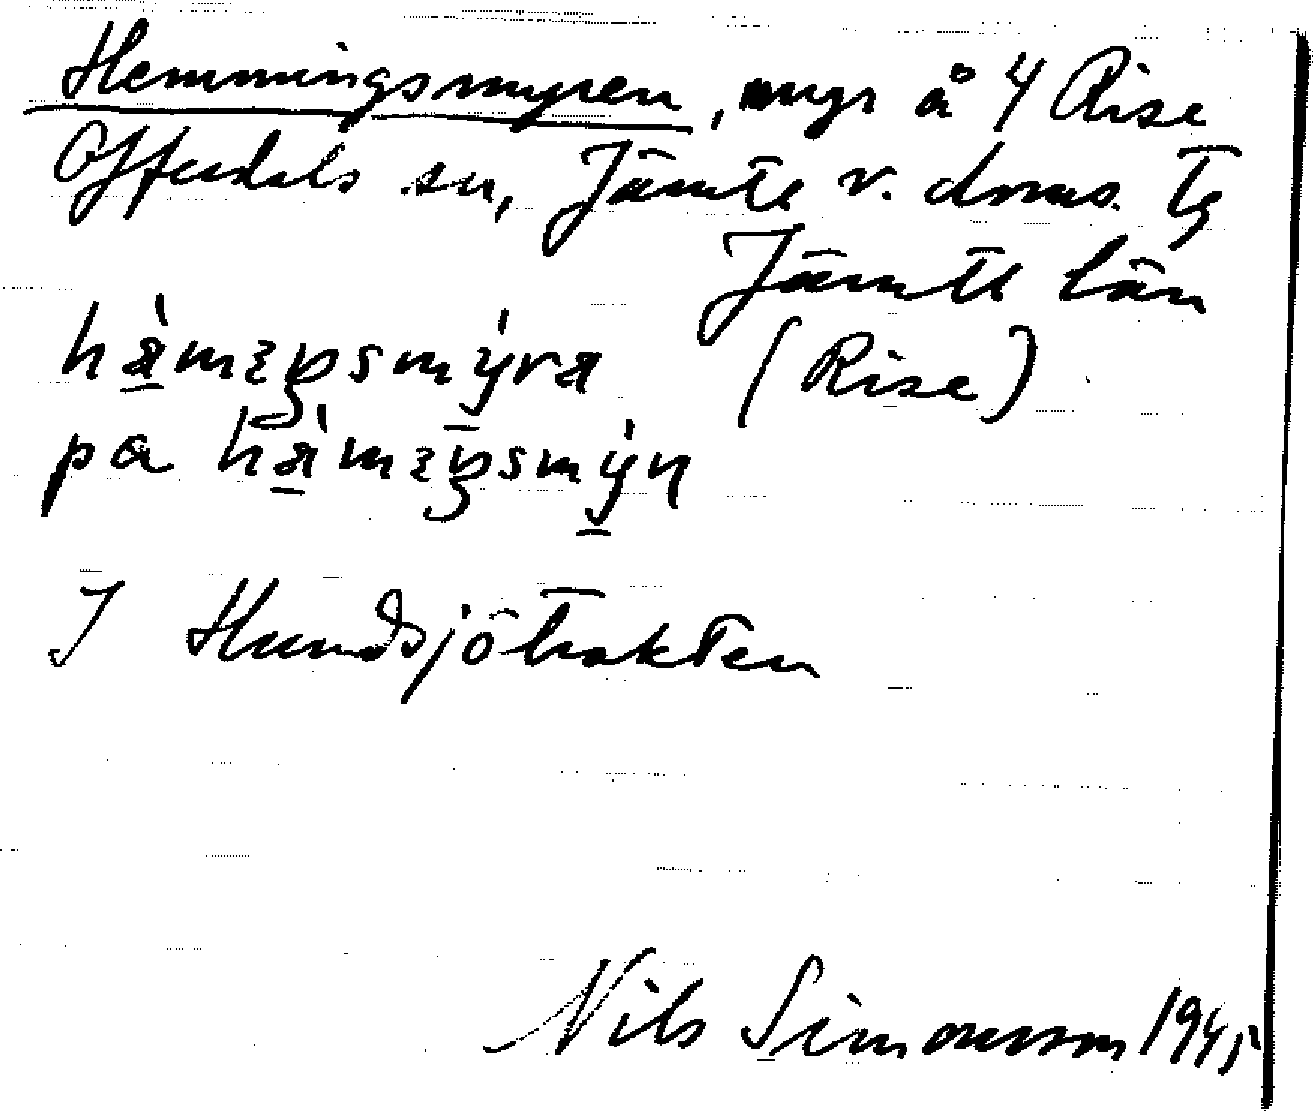 Hemmingsmyren, myr å 4 Rise
Offerdals sn, Jämtl v. doms. Tg
Jämtl län
(Rise)
pa
I Hundsjötrakten
Nils Simonsson 1945